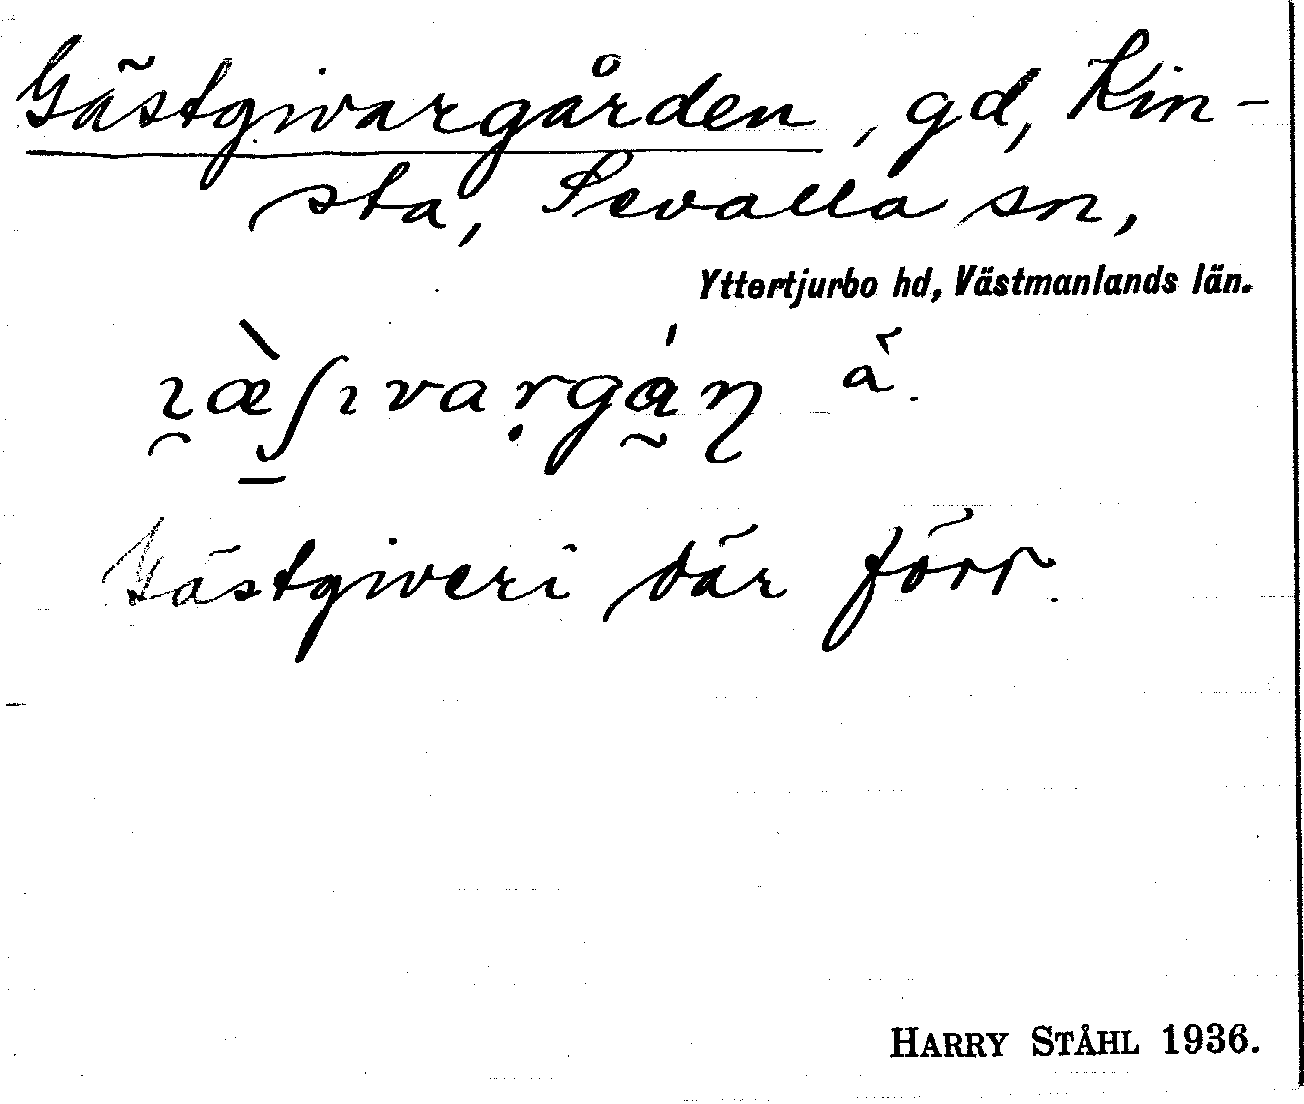 Gästgivargården, gd, Kin-
sta, Sevalla sn,
Yttertjurbo hd, Västmanlands län.
å
Gästgiveri där förr.
HARRY STÅHL 1936.